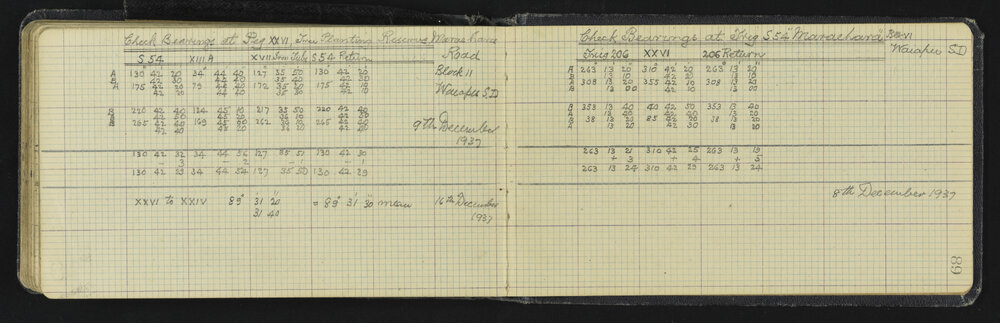 Check Bearings at Peg XXVI, Tree Planting Reserves Maraehara
S 54 XIII A XVII Iron Tube S 54 Return Road
A 130° 42' 20" 34° 44' 40" 127 35 50 130° 42' 20" Block 11
B 42 30 44 40 35 40 42 30
A 175 42 20 79 44 40 172 35 50 175 42 20 Waiapu S.D
42 20 44 40 35 50 42 10
B 220 42 40 124 45 10 217 35 50 220 42 40
42 40 45 20 42 50
B 265 42 40 169 45 00 262 265 42 40 9th December
42 40 45 20 42 40 1937
130 42 32 34 44 56 127 35 51 130 42 30
– 3 – 2 – 1 – 1
130 42 29 34 44 54 127 35 50 130 42 29
XXVI to XXIV 89° 31' 20" = 89° 31' 30" mean 16th December
31 40 1937
Check Bearings at Trig S 54 Maraehara, Blk VI
Trig 206 XXVI 206 Return Waiapu S.D
A 263° 13' 20" 310° 42' 20" 263° 13' 20"
B 13 10 42 20 13 10
A 308 13 20 355 42 20 308 13 20
13 00 42 20 13 00
B 353 13 40 40 42 50 353 13 40
13 40 42 40 13 40
B 38 13 20 85 42 20 38 13 20
A 13 20 42 30 13 20
263 13 21 310 42 25 263 13 19
+ 3 + 4 + 5
263 13 24 310 42 29 263 13 24
8th December 1937
89